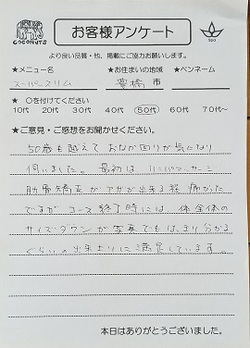 COCONUTS
お客様アンケート
より良い品質・也、掲載にご協力お願いします。
★メニュー名 ★お住まいの地域 ★ペンネーム
スーパースリム 豊橋市
★ ○を付けてください
10代 20代 30代 40代 50代 60代 70代～
★ご意見・ご感想をお聞かせください。
50歳も越えて おなか回りが気になり
伺いました。最初は ハンパンサー
筋膜矯正が アザが出来る程 痛かった
ですが コース終了時には、体全体の
サイズダウンが 写真でもはっきり分かる
ぐらいの出来上りに満足しています。
本日はありがとうございました。